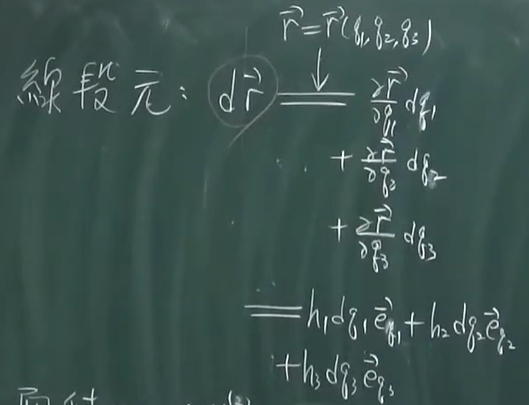 r⃗ = r⃗(q₁,q₂,q₃)
線段元: dr⃗ = ∂r⃗/∂q₁ dq₁
+ ∂r⃗/∂q₂ dq₂
+ ∂r⃗/∂q₃ dq₃
= h₁dq₁e⃗q₁ + h₂dq₂e⃗q₂
+ h₃dq₃e⃗q₃